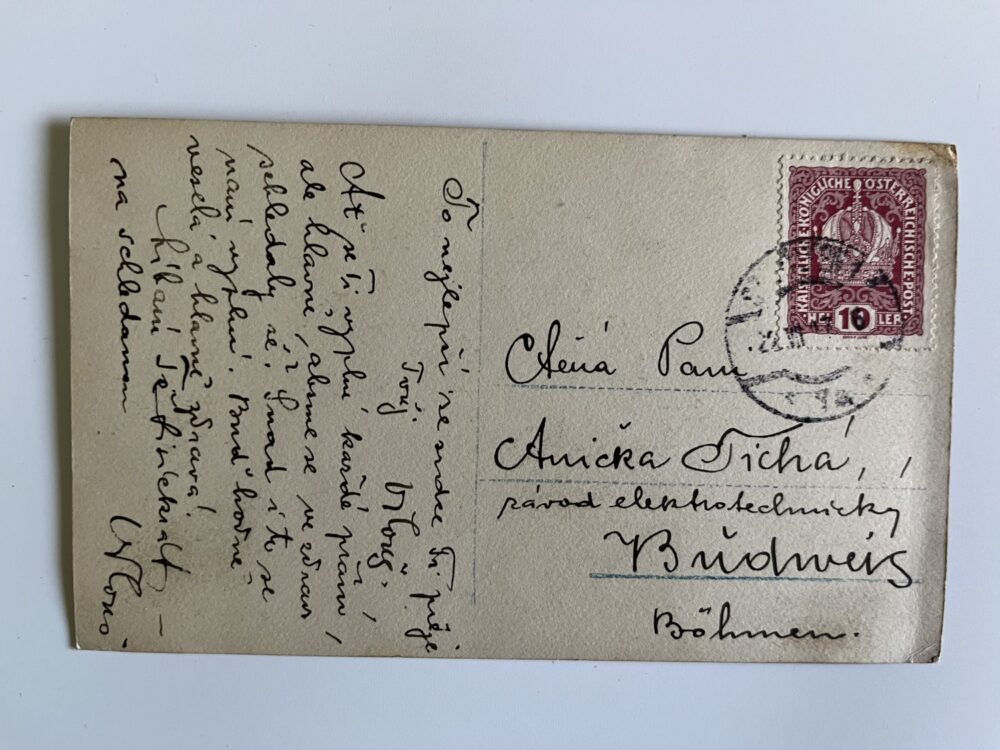 To nejlepší ze srdce Ti přeje
Tvůj
Ať se Ti vyplní každé přání,
ale hlavní, abysme se ve zdraví
shledaly se! Snad i to se
nám vyplní. Buď hodně
veselá a hlavně zdravá!
Líbám Tě tisíckrát –
na shledanou
Ctěná Paní
Anička Tichá,
závod elektrotechnický
Budweis
Böhmen.
KAISERLICHE KÖNIGLICHE ÖSTERREICHISCHE POST
HELLER
10